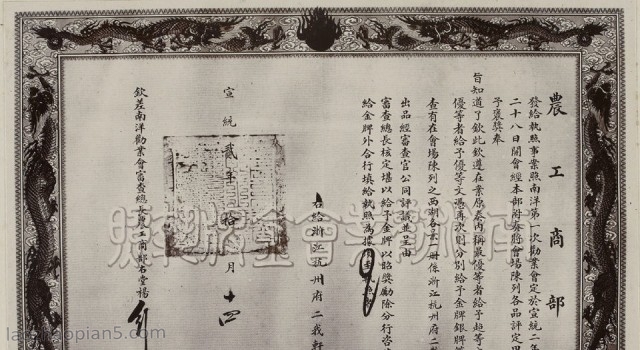 農工商部
發給執照事業照南洋第一次勸業會定於宣統二年
二十八日開會經本部附奏將會場陳列各品評定甲
予褒獎奉
旨知道了欽此欽遵在案原奏內稱最優等者給予超等
優等者給予優等文憑再次則分別給予金牌銀牌等
查有在會場陳列之西湖各景冊係浙江杭州府二
出品經審查官公同評議並呈由
審查總長核定堪以給予金牌以詔獎勵除分行咨
給金牌外合行填給執照為據
右給浙江杭州府二我軒
宣統貳年拾月十四
欽差南洋勸業會審查總長農工商部右堂楊
laozhaopian5.com